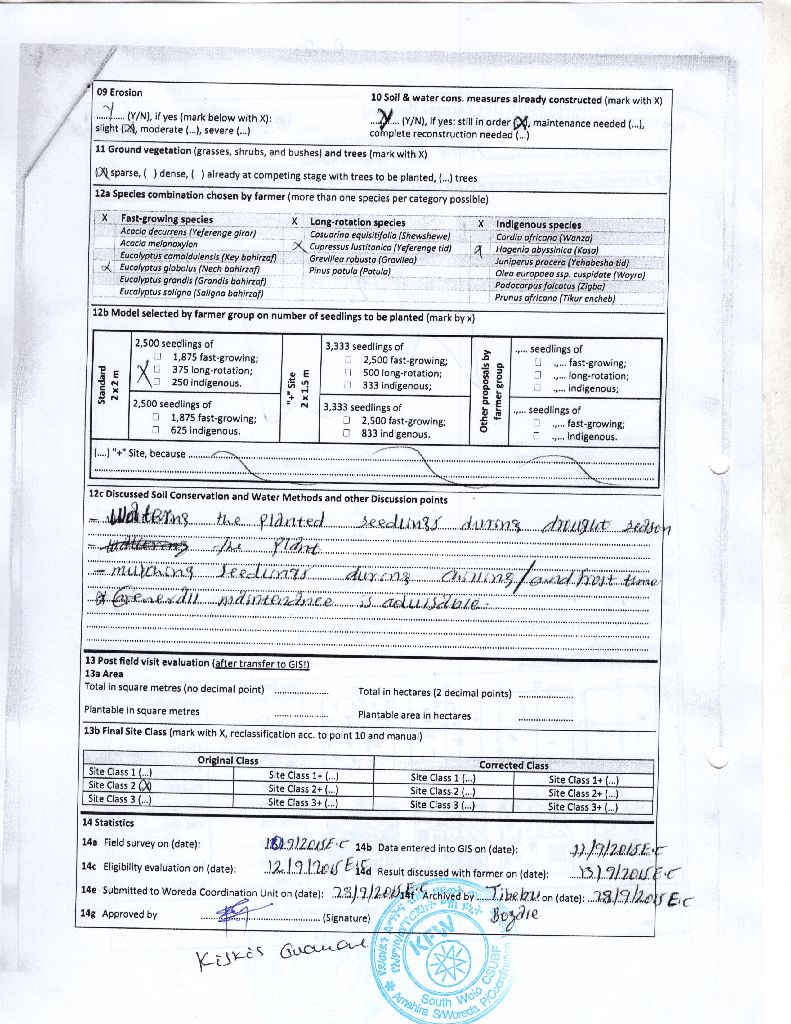 09 Erosion
10 Soil & water cons. measures already constructed (mark with X)
Y (Y/N), if yes (mark below with X):
Y (Y/N), if yes: still in order (X), maintenance needed (...),
slight (X), moderate (...), severe (...)
complete reconstruction needed (...)
11 Ground vegetation (grasses, shrubs, and bushes) and trees (mark with X)
(X) sparse, ( ) dense, ( ) already at competing stage with trees to be planted, (...) trees
12a Species combination chosen by farmer (more than one species per category possible)
X Fast-growing species X Long-rotation species X Indigenous species
Acacia decurrens (Yeferenge girar)
Acacia melanoxylon
Eucalyptus camaldulensis (Key bahirzaf)
X Eucalyptus globolus (Nech bahirzaf)
Eucalyptus grandis (Grandis bahirzaf)
Eucalyptus saligna (Saligna bahirzaf)
Casuarina equisitifolia (Shewshewe)
X Cupressus lustitonica (Yeferenge tid)
Grevillea robusta (Gravilea)
Pinus patula (Patula)
Cordia africana (Wanza)
X Hagenia abyssinica (Koso)
Juniperus procera (Yehabesha tid)
Olea europaea ssp. cuspidate (Woyra)
Podocarpus falcatus (Zigba)
Prunus africana (Tikur encheb)
12b Model selected by farmer group on number of seedlings to be planted (mark by x)
Standard
2 x 2 m
2,500 seedlings of
1,875 fast-growing;
X 375 long-rotation;
250 indigenous.
2,500 seedlings of
1,875 fast-growing;
625 indigenous.
"+" Site
2 x 1.5 m
3,333 seedlings of
2,500 fast-growing;
500 long-rotation;
333 indigenous;
3,333 seedlings of
2,500 fast-growing;
833 indigenous.
Other proposals by
farmer group
.,... seedlings of
.,... fast-growing;
.,... long-rotation;
.,... indigenous;
.,... seedlings of
.,... fast-growing;
.,... indigenous.
(....) "+" Site, because
12c Discussed Soil Conservation and Water Methods and other Discussion points
- Watering the planted seedlings during drought season
the plant
- mulching seedlings during chilling/and frost time
Generall maintenance is advisable.
13 Post field visit evaluation (after transfer to GIS!)
13a Area
Total in square metres (no decimal point) Total in hectares (2 decimal points)
Plantable in square metres Plantable area in hectares
13b Final Site Class (mark with X, reclassification acc. to point 10 and manual)
Original Class Corrected Class
Site Class 1 (...) Site Class 1+ (...) Site Class 1 (...) Site Class 1+ (...)
Site Class 2 (X) Site Class 2+ (...) Site Class 2 (...) Site Class 2+ (...)
Site Class 3 (...) Site Class 3+ (...) Site Class 3 (...) Site Class 3+ (...)
14 Statistics
14a Field survey on (date): 14b Data entered into GIS on (date): 11/9/2015E.C
14c Eligibility evaluation on (date): 12/9/2015E.C 14d Result discussed with farmer on (date): 13/9/2015E.C
14e Submitted to Woreda Coordination Unit on (date): 28/9/2015E.C 14f Archived by Tibebu on (date): 28/9/2015E.C
14g Approved by (Signature)
KFW
South Wolo CSUBF
Amahira S/Woreda P/Coordination